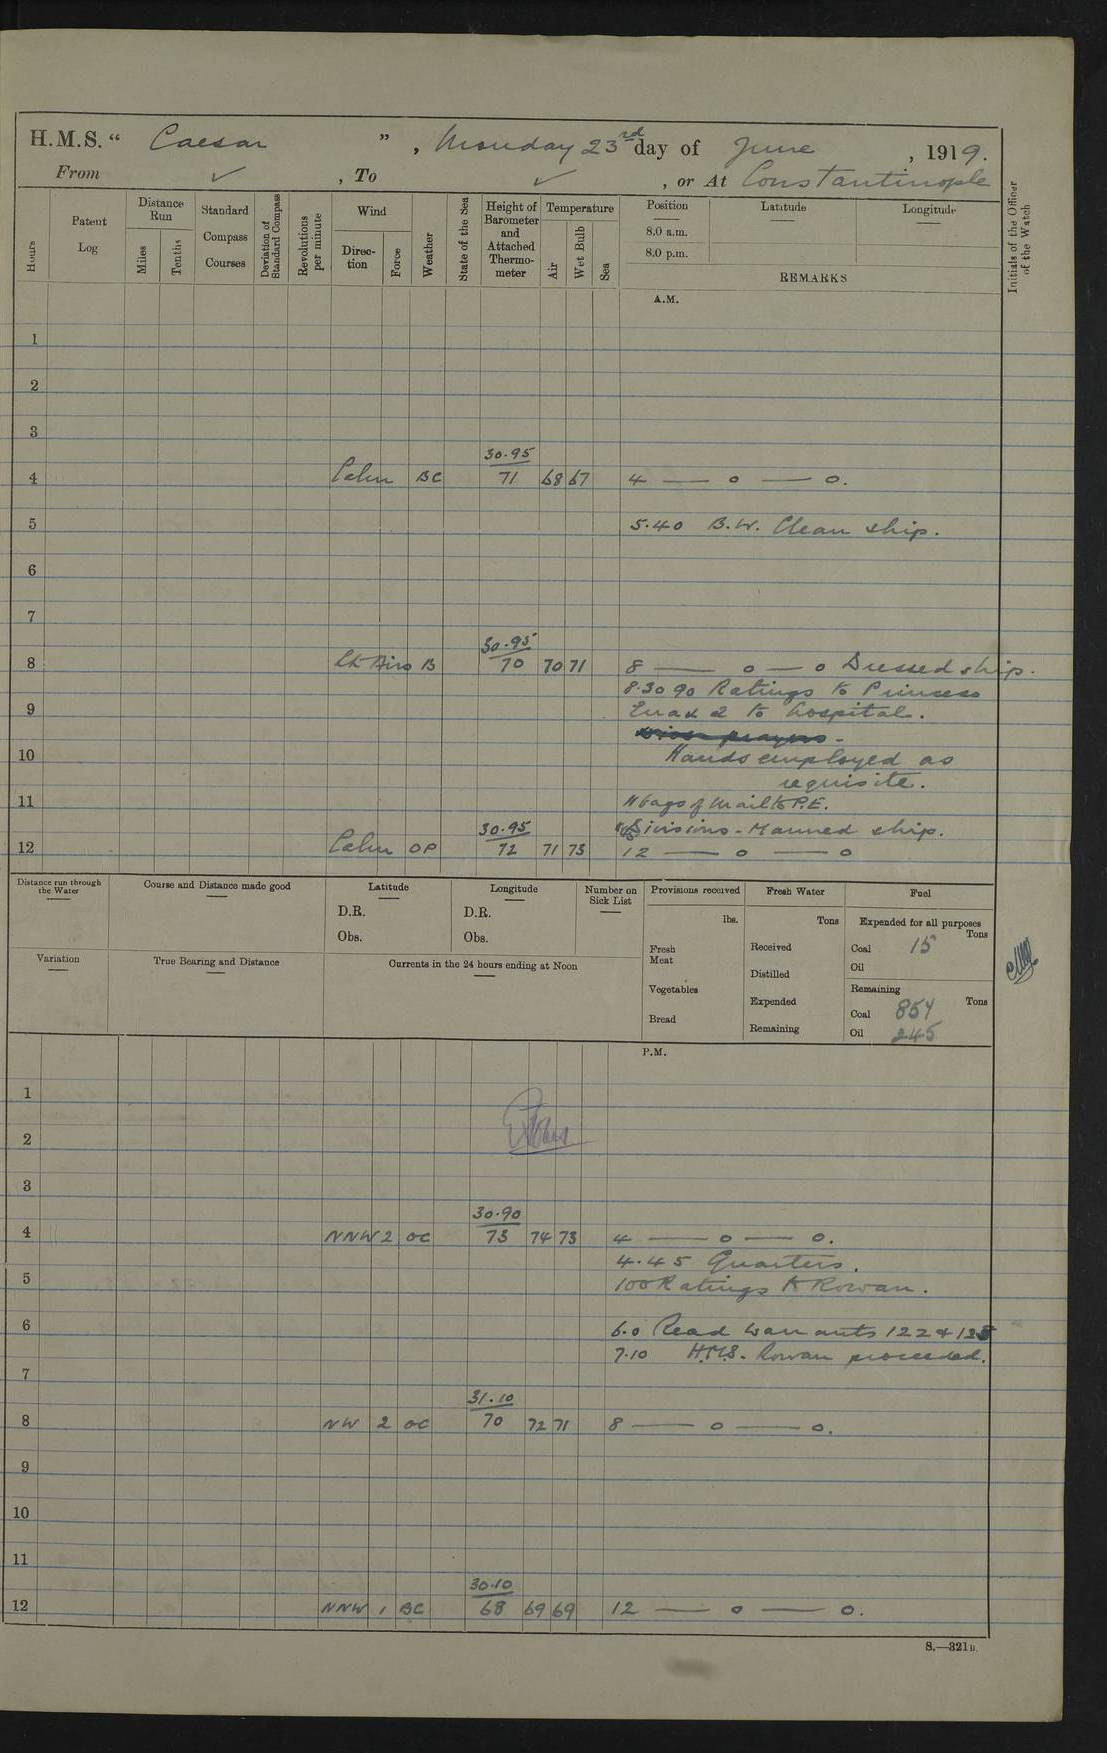 H.M.S. “ Caesar ” , Monday 23rd day of June , 1919.
From ✓ , To ✓ , or At Constantinople
Hours
Patent Log
Distance Run
Miles
Tenths
Standard Compass Courses
Deviation of Standard Compass
Revolutions per minute
Wind
Direc-tion
Force
Weather
State of the Sea
Height of Barometer and Attached Thermo-meter
Temperature
Air
Wet Bulb
Sea
Position
Latitude
Longitude
8.0 a.m.
8.0 p.m.
REMARKS
Initials of the Officer of the Watch
A.M.
1
2
3
30.95
4 Calm BC 71 68 67 4 — o — o.
5 5.40 B.W. Clean ship.
6
7
30.95
8 Lt Airs B 70 70 71 8 — o — o Dressed ship.
8.30 90 Ratings to Princess
9 Ena & 2 to hospital.
10 Hands employed as
requisite.
11 11 bags of mail to P.E.
30.95 Divisions - Manned ship.
12 Calm OP 72 71 73 12 — o — o
Distance run through the Water
Course and Distance made good
Latitude
D.R.
Obs.
Longitude
D.R.
Obs.
Number on Sick List
Provisions received
lbs.
Fresh Meat
Vegetables
Bread
Fresh Water
Tons
Received
Distilled
Expended
Remaining
Fuel
Expended for all purposes
Tons
Coal 15
Oil
Remaining
Tons
Coal 854
Oil 245
Variation
True Bearing and Distance
Currents in the 24 hours ending at Noon
P.M.
1
2
3
30.90
4 NNW 2 OC 73 74 73 4 — o — o.
4.45 Quarters.
5 100 Ratings to Rowan.
6 6.0 Read Warrants 122 &
7.10 H.M.S. Rowan proceeded.
7
31.10
8 NW 2 OC 70 72 71 8 — o — o.
9
10
11
30.10
12 NNW 1 BC 68 69 69 12 — o — o.
S.—321B.